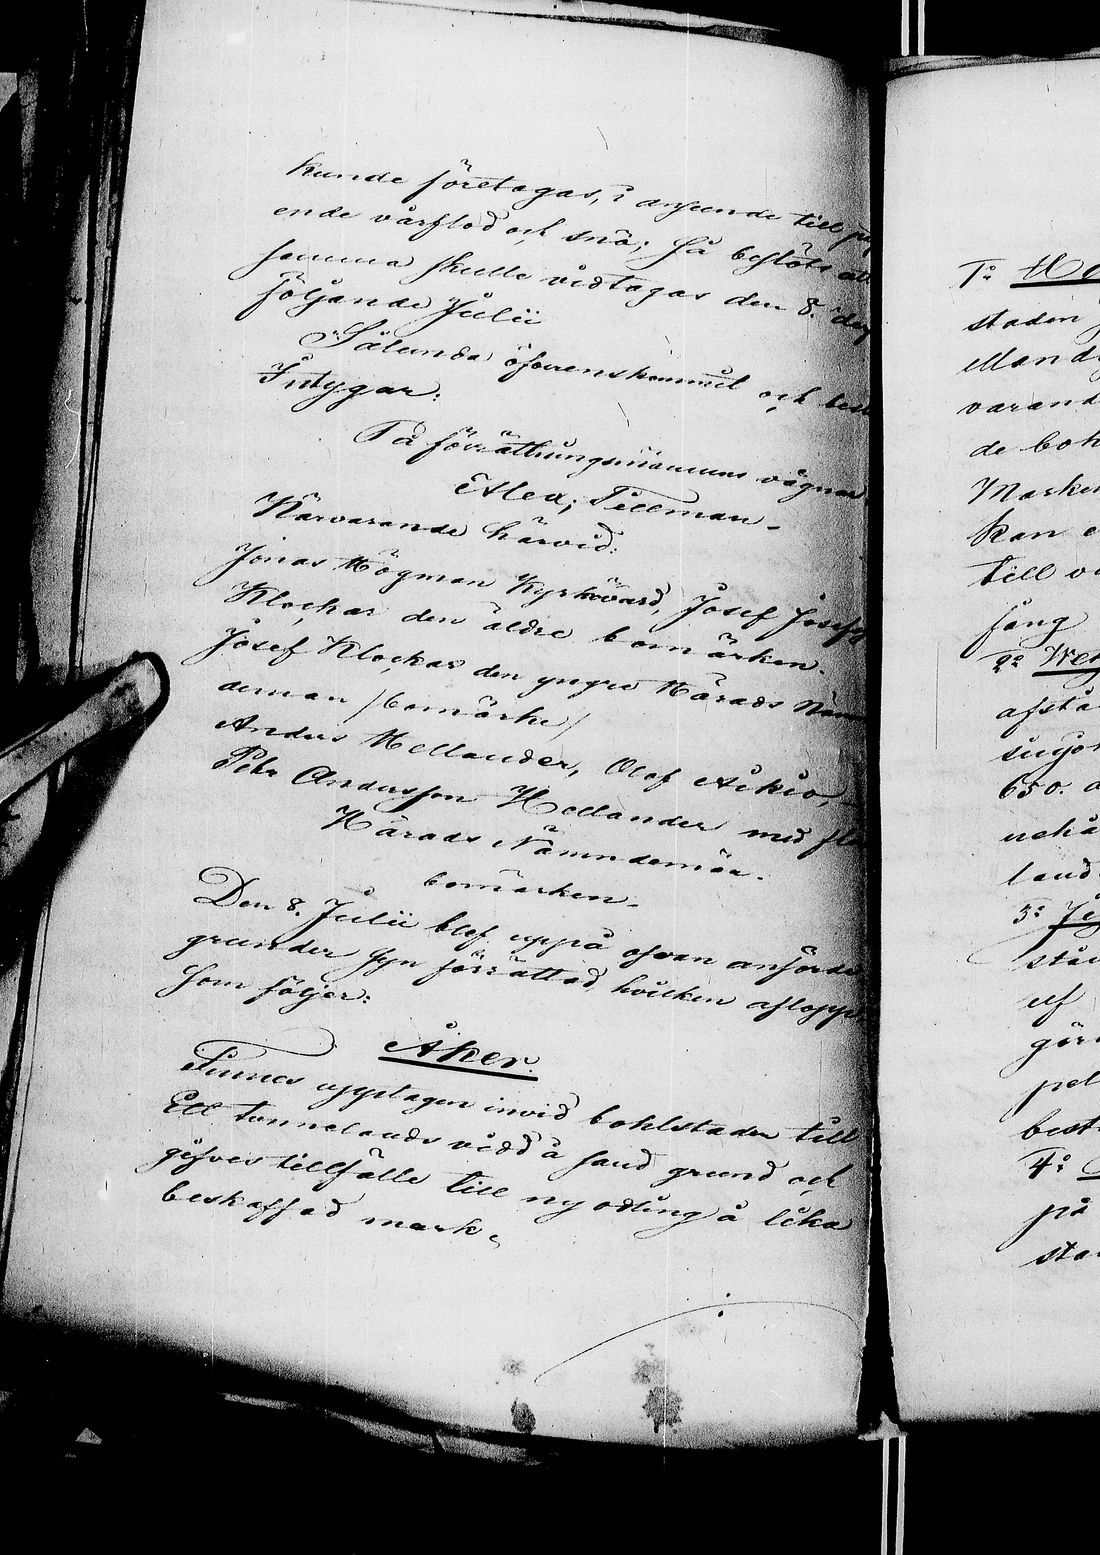 kunde företagas, i anseende till
ende vårflod och snö; Så beslöts at
samma skulle vidtagas den 8. dag
följande Julii
Sålunda öfverenskommit och
Intygar.
På förrättningsmännens vägnar
Alex; Tillman.
Närvarande härvid:
Jonas Högman Kyrkovärd, Josef Josefs
Klockar den äldre bomärken.
Josef Klockar den yngre Härads Näm
deman /bomärke/
Anders Mellander, Olof Aikio,
Petr Andersson Hellander med fle
Härads Nämndemän.
bomärken.
Den 8. Julii blef uppå ofvan anförde
grunder syn förrättad, hvilken aflopp
som följer:
Åker.
Finnes upptagen invid bohlstaden till
Ett tunnelands vidd å sand grund och
gifves tillfälle till ny odling å lika
beskaffad mark.
1:o
staden
varand
de boh
Marken
kan e
till
fång
2:o
afstå
650. a
land
3:o
gör
pel
best
4:o
på
sta